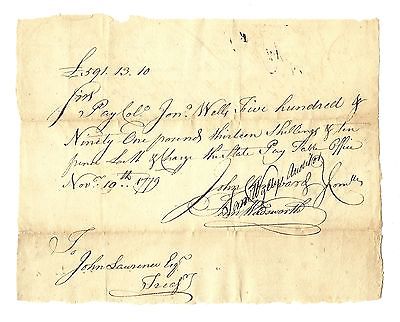 £591. 13. 10
Sir
Pay Colo. Jonn. Wells Five hundred &
Ninety One pounds thirteen Shillings & ten
pence Lawll & Charge the State Pay Table Office
Novr. 10th 1779
John Chenward Comtee
Wadsworth
To
John Lawrence Esqr.
Treasr